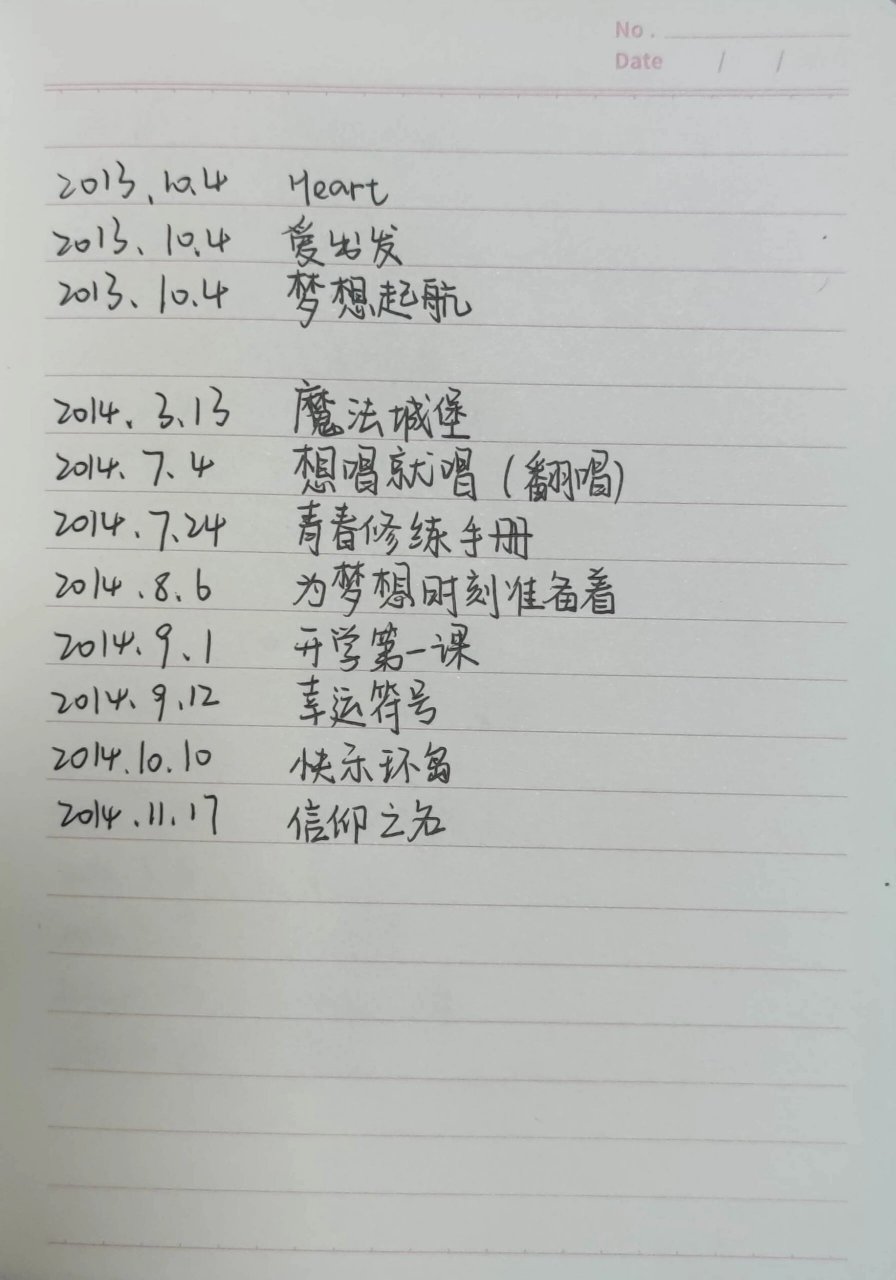 No.
Date / /
2013.10.4 Heart
2013.10.4 爱出发
2013.10.4 梦想起航
2014.3.13 魔法城堡
2014.7.4 想唱就唱(翻唱)
2014.7.24 青春修练手册
2014.8.6 为梦想时刻准备着
2014.9.1 开学第一课
2014.9.12 幸运符号
2014.10.10 快乐环岛
2014.11.17 信仰之名